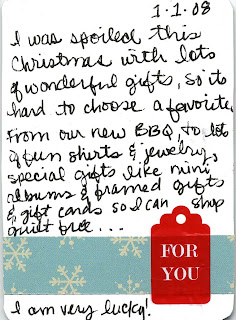 1.1.08
I was spoiled this
Christmas with lots
of wonderful gifts, so its
hard to choose a favorite.
From our new BBQ, to lots
of fun shirts & jewelry,
special gifts like mini
albums & framed gifts
& gift cards so I can shop
guilt free ....
FOR
YOU
I am very lucky!